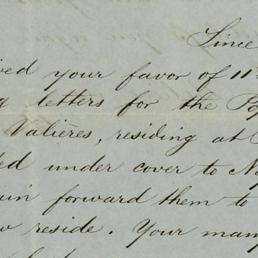 Since
ved your favor of 11
letters for the
Valières, residing at
ed under cover to
forward them to
reside. Your